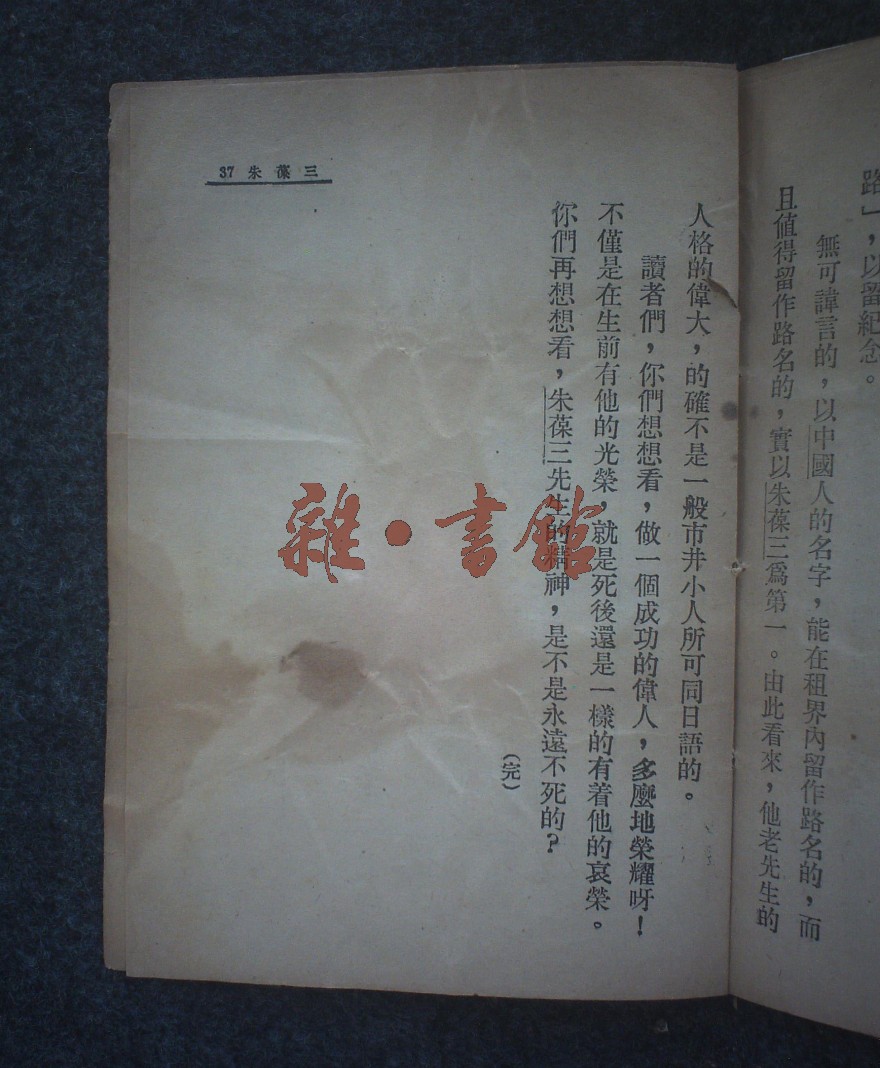 路」，以留紀念。
無可諱言的，以中國人的名字，能在租界內留作路名的，而
且値得留作路名的，實以朱葆三爲第一。由此看來，他老先生的
人格的偉大，的確不是一般市井小人所可同日語的。
讀者們，你們想想看，做一個成功的偉人，多麼地榮耀呀！
不僅是在生前有他的光榮，就是死後還是一樣的有着他的哀榮。
你們再想想看，朱葆三先生的精神，是不是永遠不死的？
（完）
37 朱葆三
雜·書館